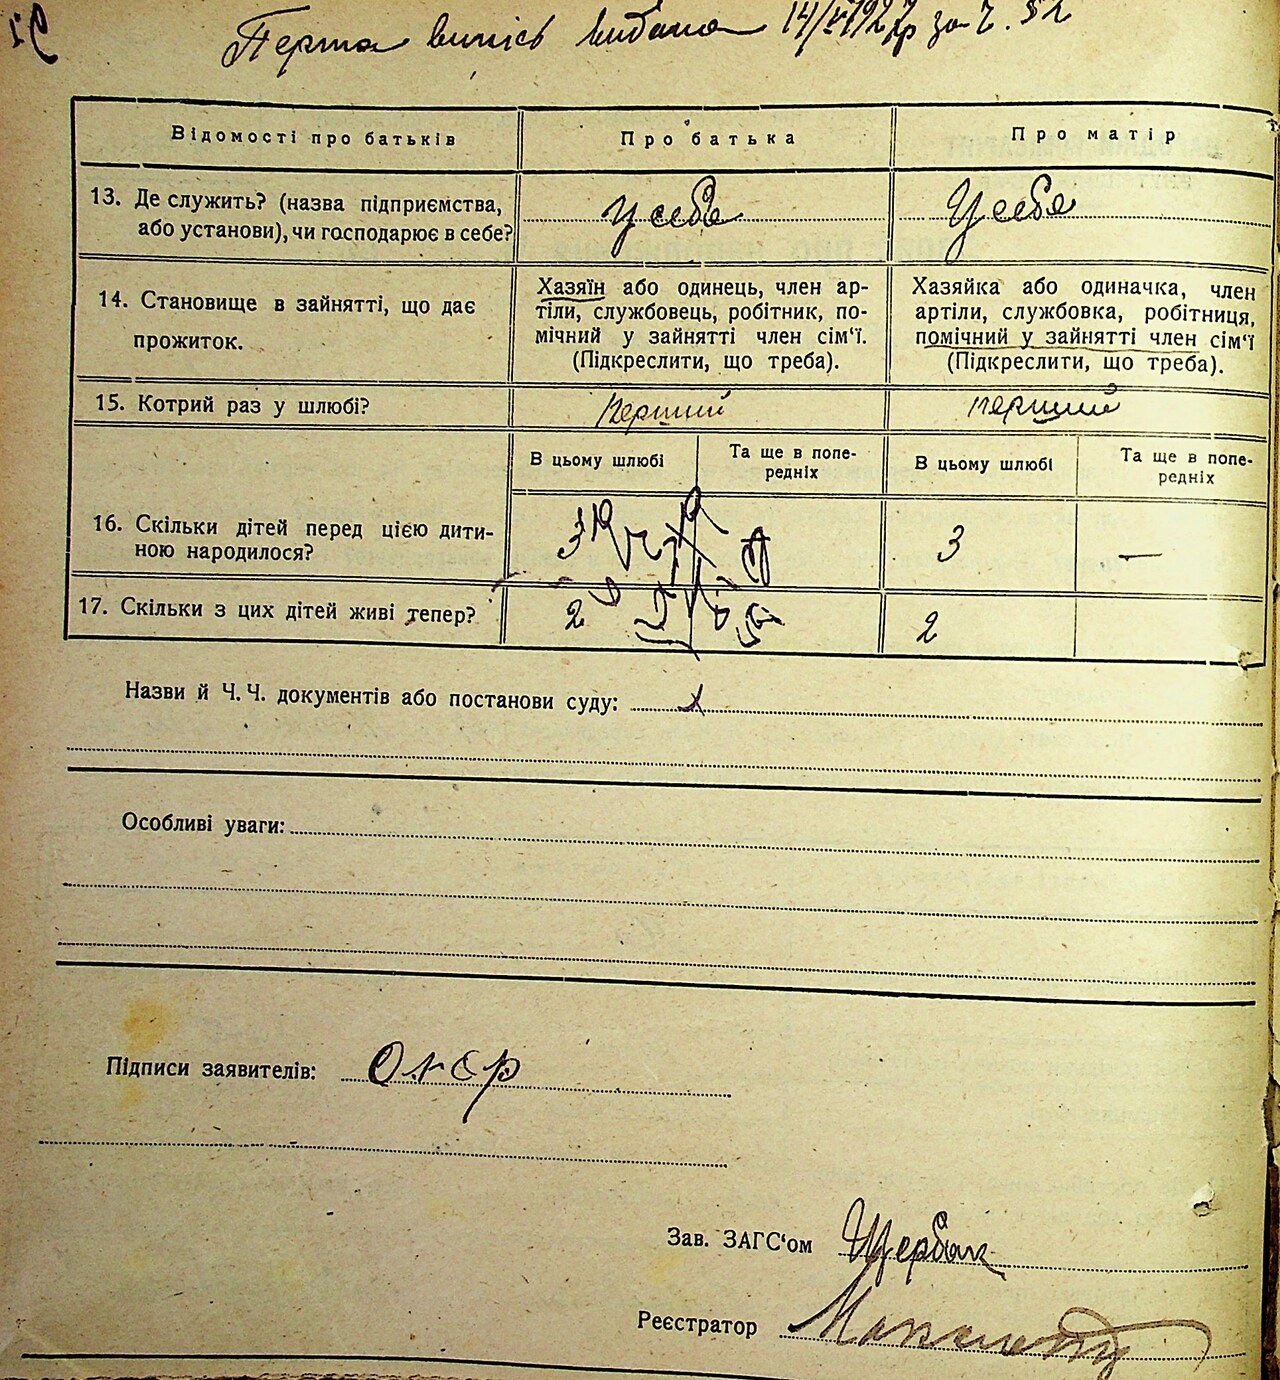 Перша випись видана 14/VI 1927р за Ч. 52
Відомості про батьків
Про батька
Про матір
13. Де служить? (назва підприємства,
або установи), чи господарює в себе?
У себе
У себе
14. Становище в зайнятті, що дає
прожиток.
Хазяїн або одинець, член ар-
тіли, службовець, робітник, по-
мічний у зайнятті член сім'ї.
(Підкреслити, що треба).
Хазяйка або одиначка, член
артіли, службовка, робітниця,
помічний у зайнятті член сім'ї
(Підкреслити, що треба).
15. Котрий раз у шлюбі?
перший
перший
В цьому шлюбі
Та ще в попе-
редніх
В цьому шлюбі
Та ще в попе-
редніх
16. Скільки дітей перед цією дити-
ною народилося?
3
3
—
17. Скільки з цих дітей живі тепер?
2
2
Назви й Ч. Ч. документів або постанови суду:
Особливі уваги:
Підписи заявителів:
Зав. ЗАГС'ом Щербак
Реєстратор